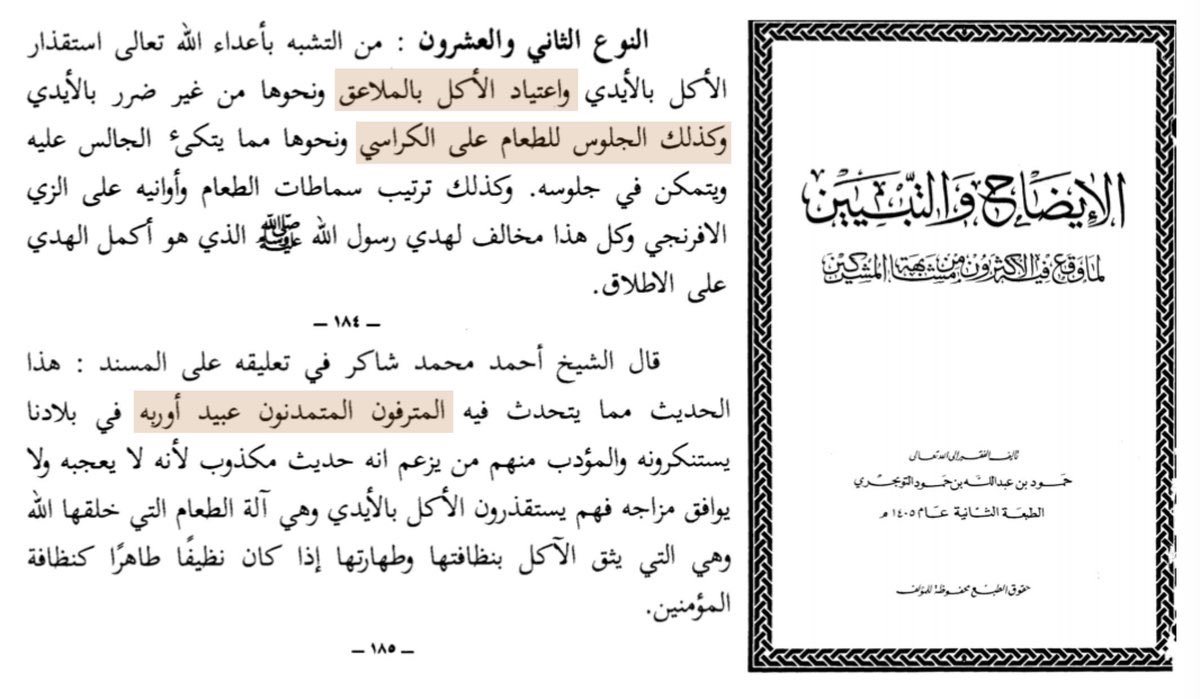 النوع الثاني والعشرون : من التشبه بأعداء الله تعالى استقذار
الأكل بالأيدي واعتياد الأكل بالملاعق ونحوها من غير ضرر بالأيدي
وكذلك الجلوس للطعام على الكراسي ونحوها مما يتكىء الجالس عليه
ويتمكن في جلوسه. وكذلك ترتيب سماطات الطعام وأوانيه على الزي
الافرنجي وكل هذا مخالف لهدي رسول الله ﷺ الذي هو أكمل الهدي
على الاطلاق.
– ١٨٤ –
قال الشيخ أحمد محمد شاكر في تعليقه على المسند : هذا
الحديث مما يتحدث فيه المترفون المتمدنون عبيد أوربه في بلادنا
يستنكرونه والمؤدب منهم من يزعم انه حديث مكذوب لأنه لا يعجبه ولا
يوافق مزاجه فهم يستقذرون الأكل بالأيدي وهي آلة الطعام التي خلقها الله
وهي التي يثق الآكل بنظافتها وطهارتها إذا كان نظيفًا طاهرًا كنظافة
المؤمنين.
– ١٨٥ –
الإيضاح والتبيين
لما وقع فيه الأكثرون من مشابهة المشركين
تأليف الفقير إلى الله تعالى
حمود بن عبدالله بن حمود التويجري
الطبعة الثانية عام ١٤٠٥ م
حقوق الطبع محفوظة للمؤلف